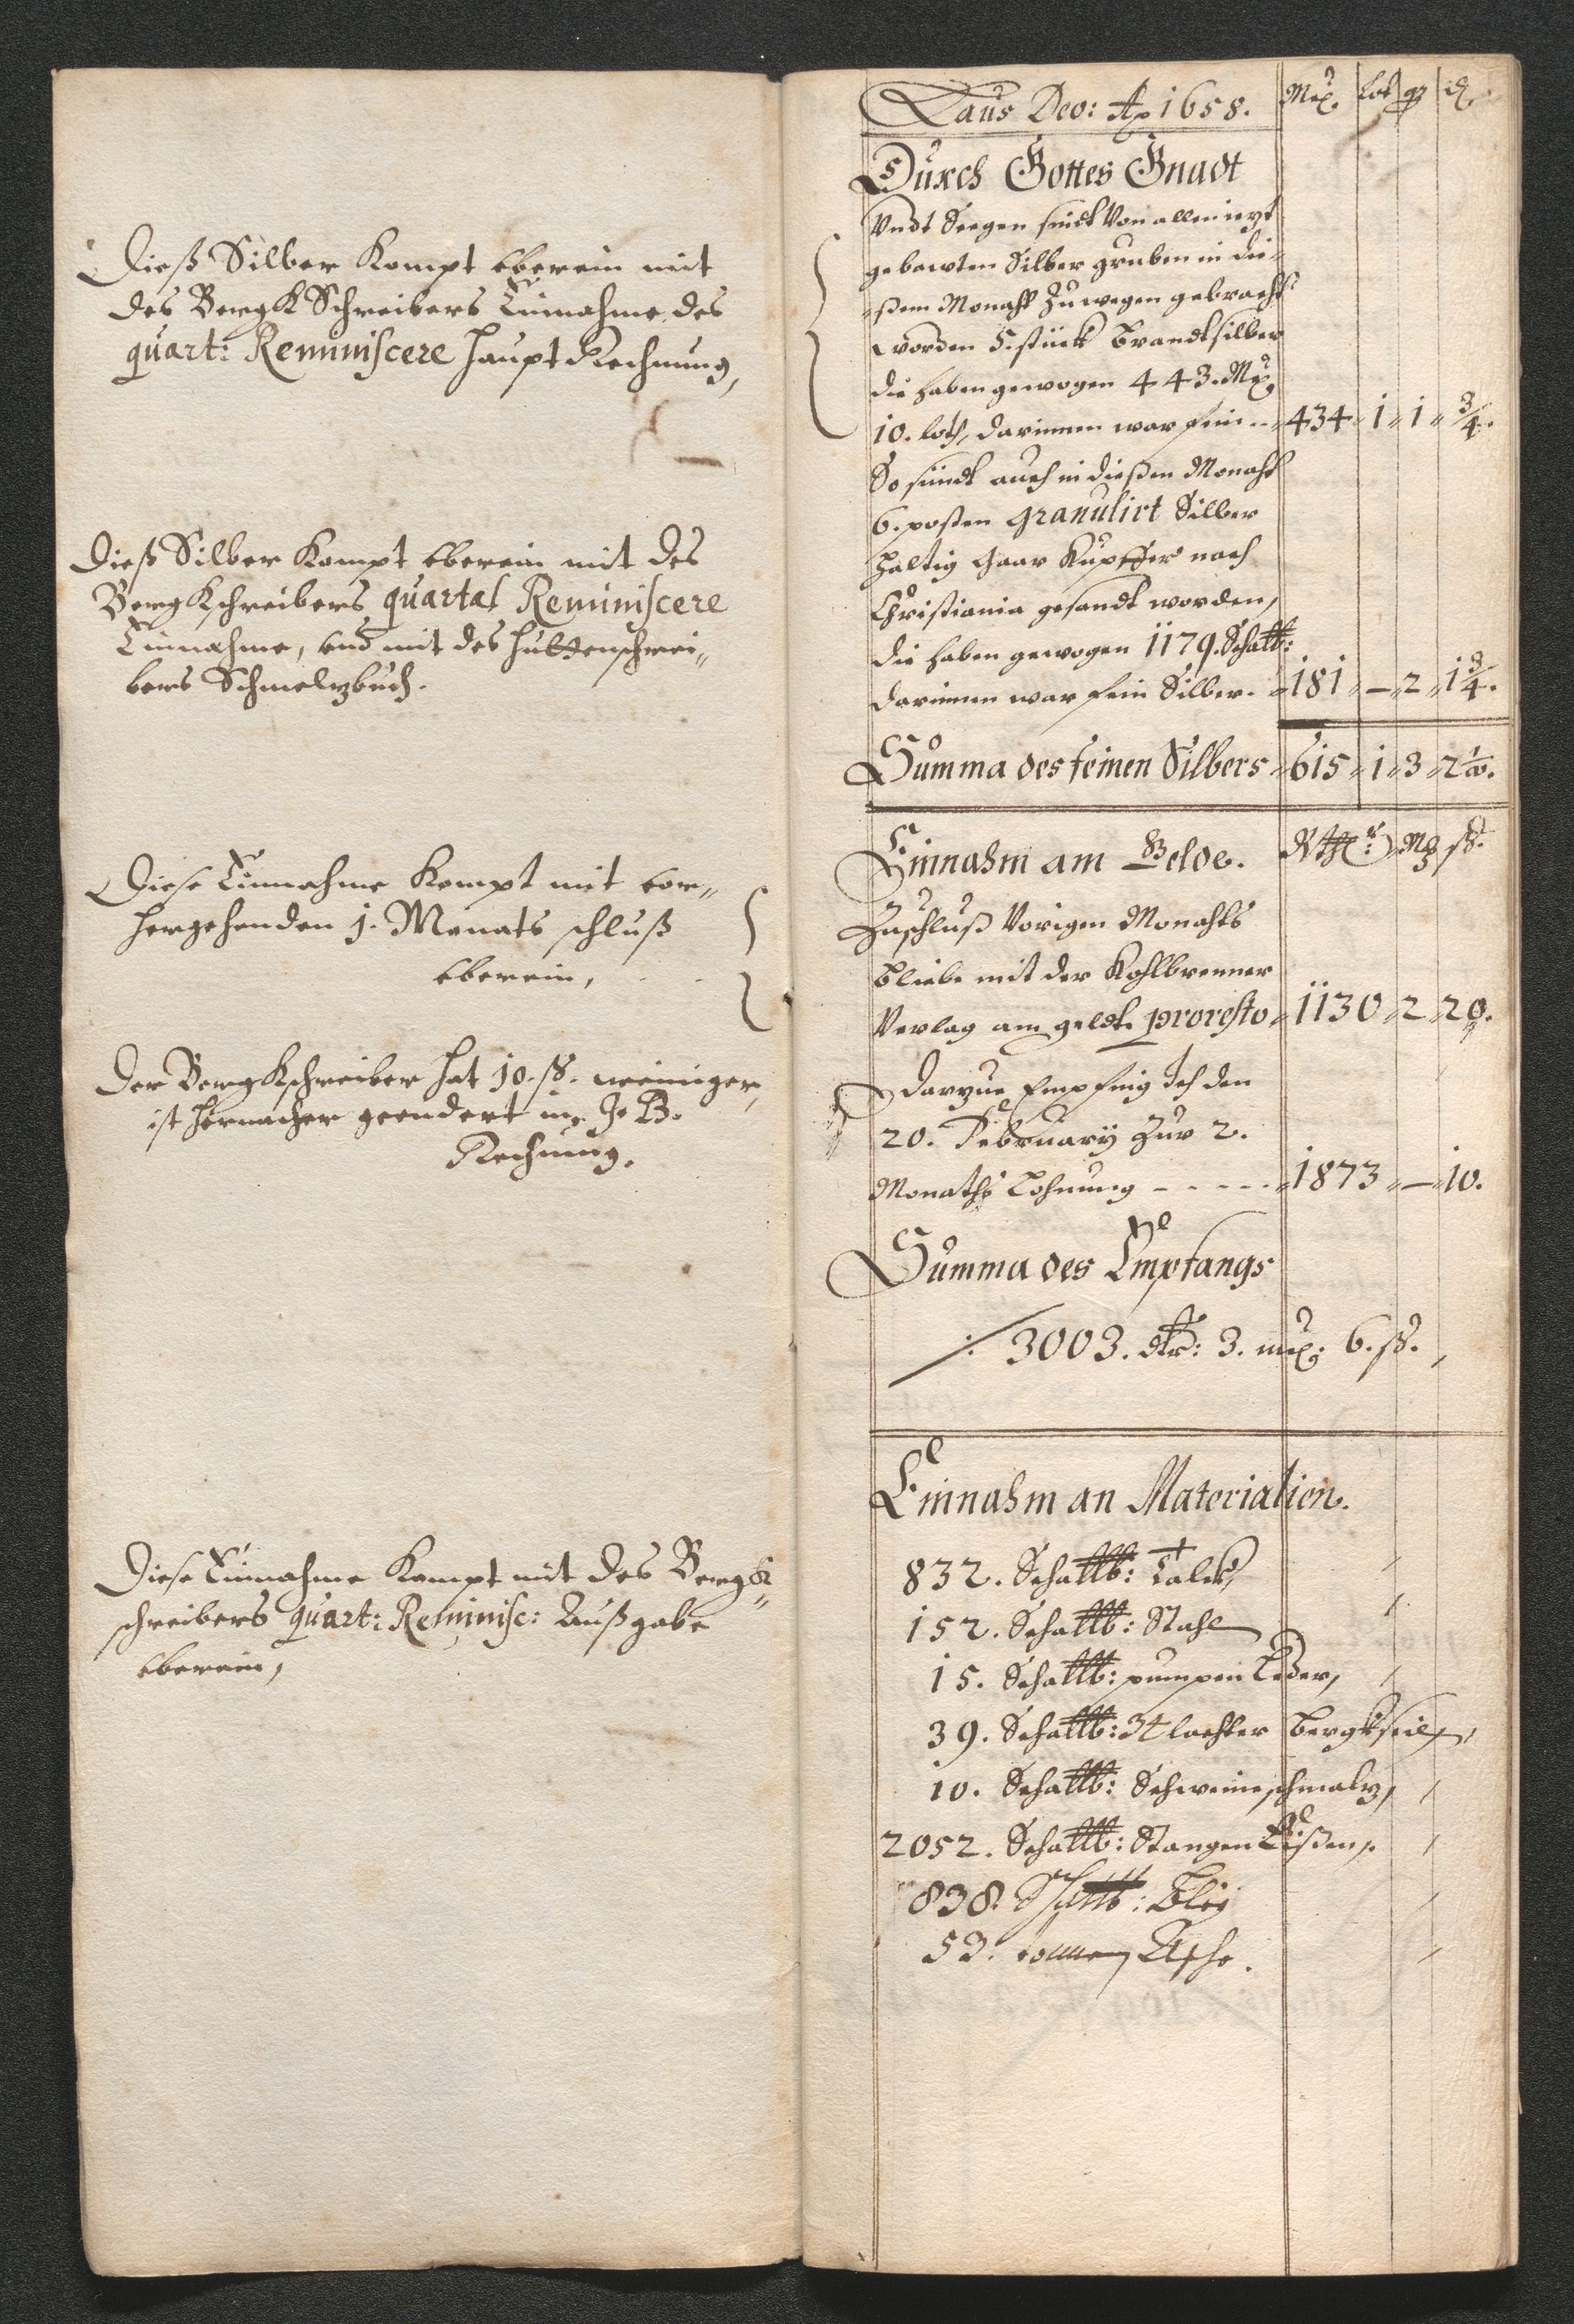 Dieß Silber Kompt eberein mit
des BergkSchreibers Einnahme des
quart: Reminiscere Haupt Rechnung,
Dieß Silber Kompt eberein mit des
Bergkschreibers quartal Reminiscere
Einnahme, und mit des Huttenschrei„
bers Schmeltzbuch.
Diese Einnahme Kompt mit vor„
hergehenden 1. Monats schluß
eberein,
Der Bergkschreiber hat 10. ß. weiniger,
ist hernacher geendert in
Rechnung.
Diese Einnahme Kompt mit des Bergk„
schreibers quart: Reminisc: Außgabe
eberein,
Laus Deo: Ao 1658. Mrk Lot q ₰
Durch Gottes Gnadt
Undt Seegen sindt Von allen iezt
gebawten Silber gruben in die„
„ßem Monaht Zu wegen gebracht
worden 5. stück Brandtsilber
die haben gewogen 443. Mrk
10. loth, darinnen war fein „434„1„1„3/4.
So sündt auch in dießen Monaht
6. posten granulirt Silber
haltig Gaar Kupffer nach
Christiania gesandt worden,
die haben gewogen 1179. Schallb:
darinnen war fein Silber. „181„—„2„1 3/4.
Summa des feinen Silbers „615„1„3„2 1/2.
Einnahm am Gelde. Rthlr: Mk ß.
Zuschluß Vorigen Monahts
bliebe mit der Kohlbrenner
Verlag am geldt. pro resto „1130„2„20.
Darzue Empfing Ich den
20. February Zur 2.
Monaths Lohnung - - - - - „1873„—„10.
Summa des Empfangs
/: 3003. dlr: 3. mrk: 6. ß.
Einnahm an Materialien.
832. Schallb: Talck,
152. Schallb: Stahl
15. Schallb: pumpen Leder,
39. Schallb: 34 lachter Bergkseil,
10. Schallb: Schweineschmaltz,
2052. Schallb: Stangen Eißen,
838. Schallb: Bley
53. tonnen Asche.